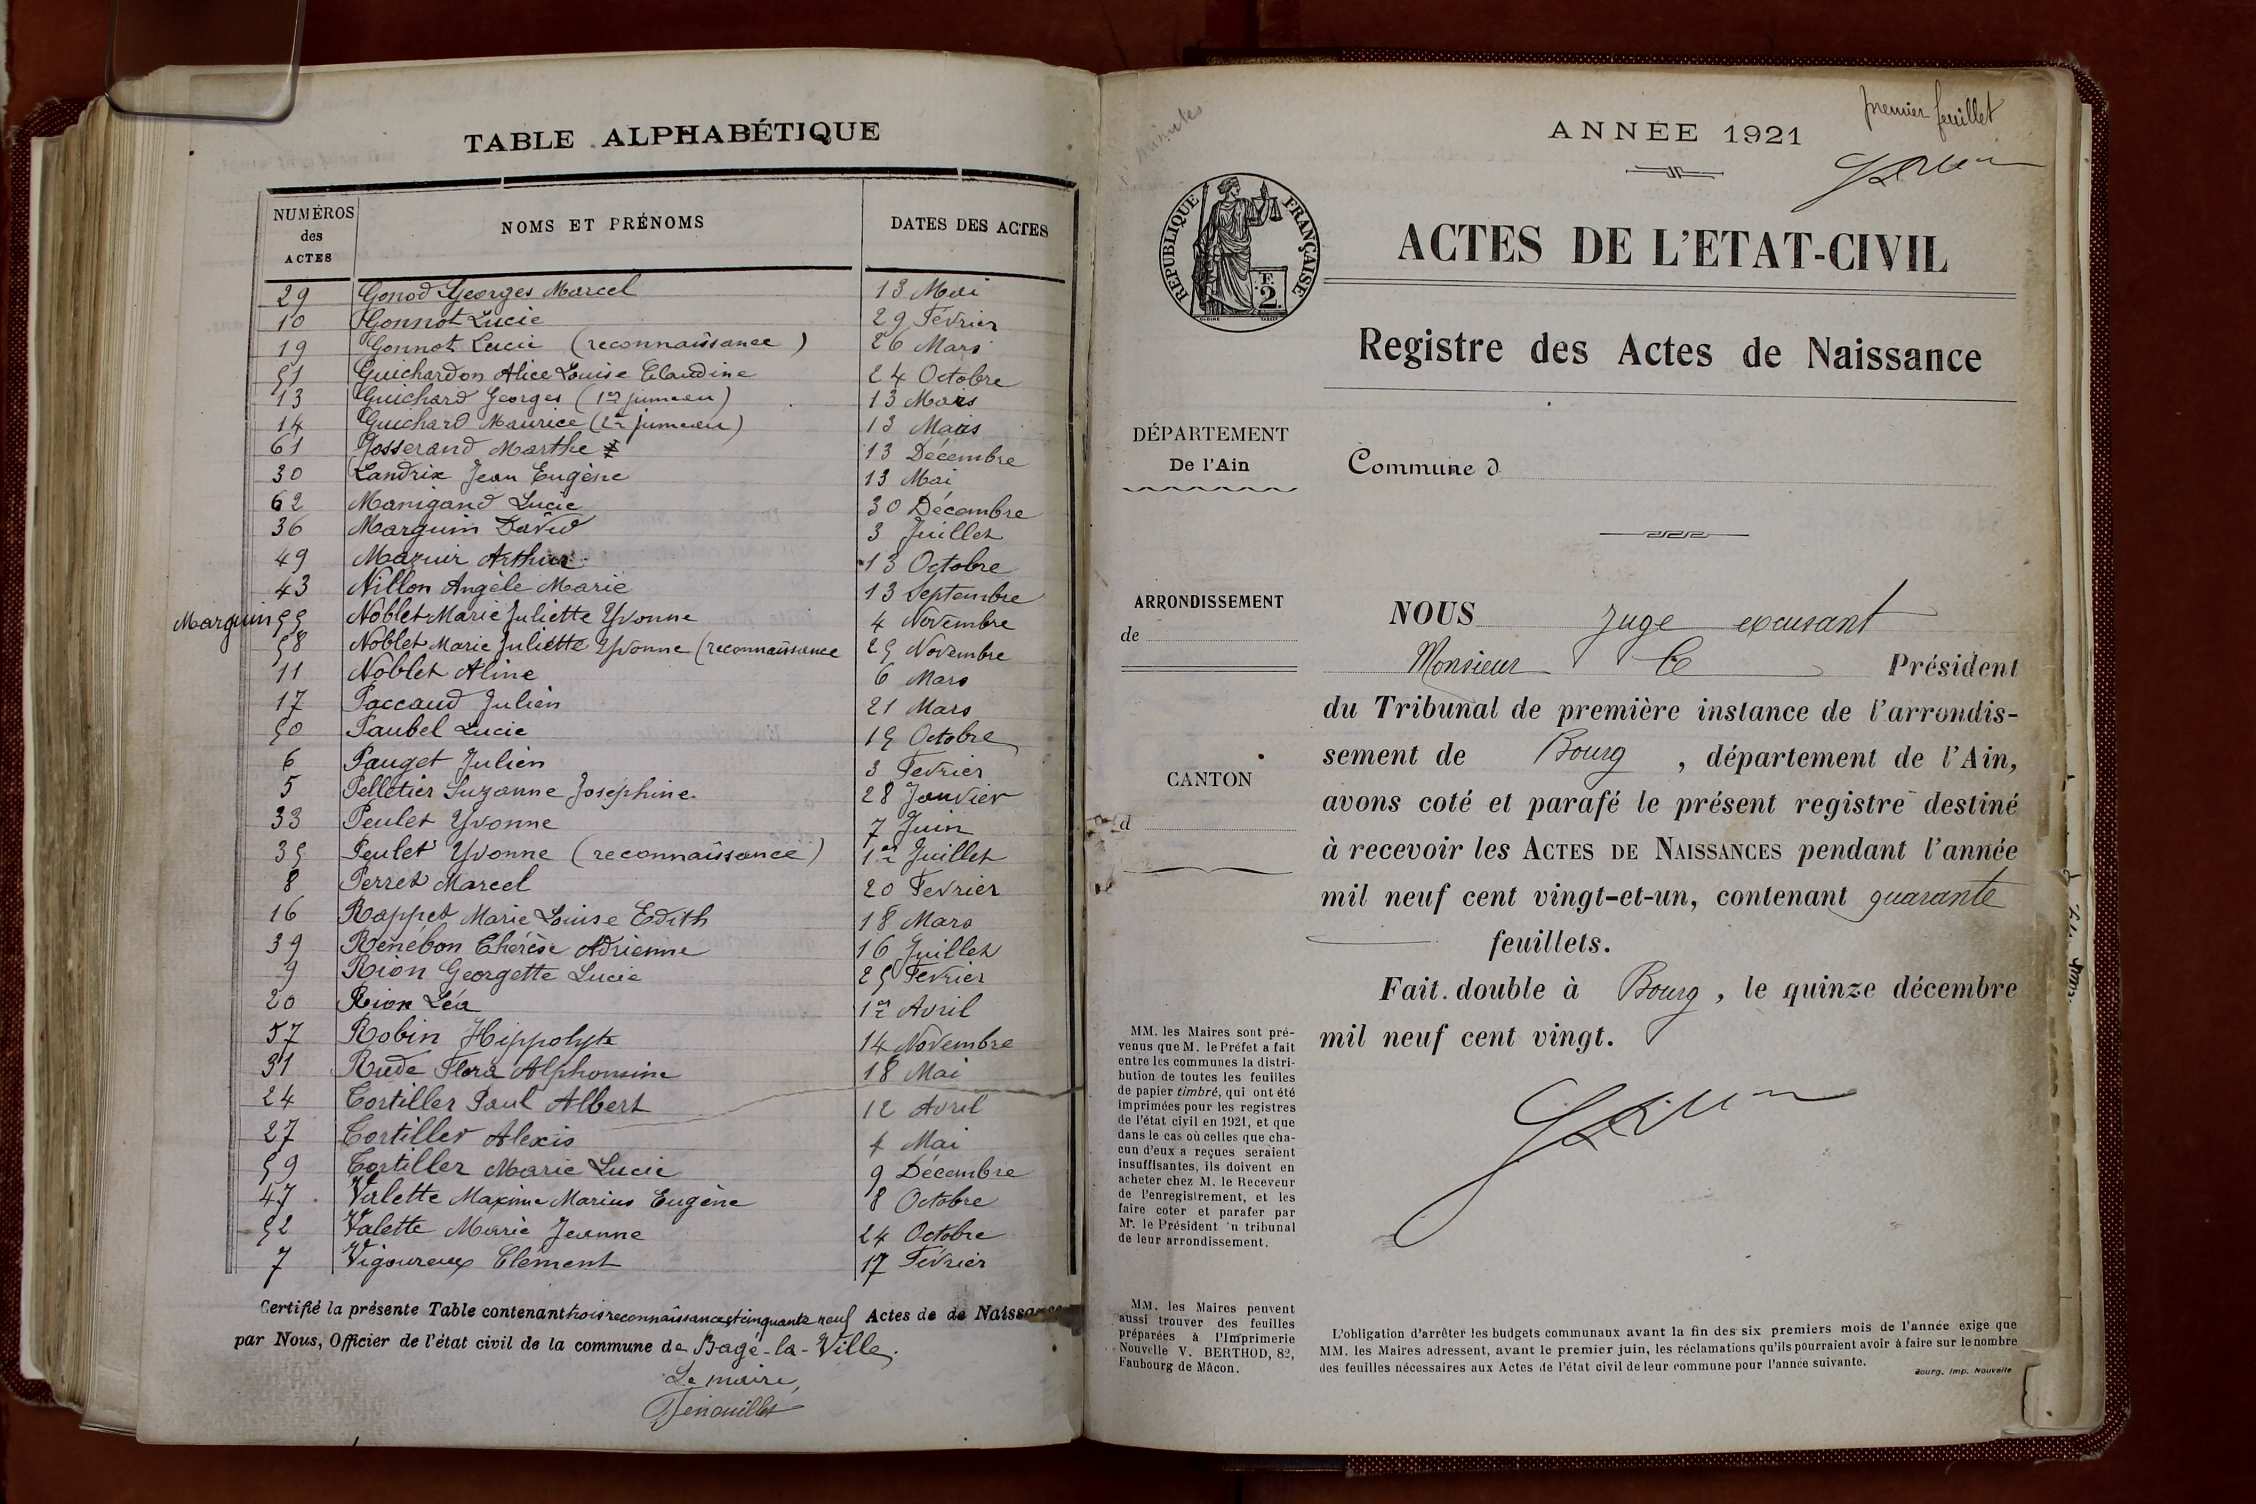 TABLE ALPHABÉTIQUE
NUMÉROS des ACTES NOMS ET PRÉNOMS DATES DES ACTES
29 Gonod Georges Marcel 13 Mai
10 Gonnot Lucie 29 Février
19 Gonnot Lucie (reconnaissance) 26 Mars
51 Guichardon Alice Louise Claudine 24 Octobre
13 Guichard Georges (1er jumeau) 13 Mars
14 Guichard Maurice (2e jumeau) 13 Mars
61 Josserand Marthe 13 Décembre
30 Landrix Jean Eugène 13 Mai
62 Manigand Lucie 30 Décembre
36 Marguin David 3 Juillet
49 Mazuir Arthur 13 Octobre
43 Nillon Angèle Marie 13 Septembre
Marguin 55 Noblet Marie Juliette Yvonne 4 Novembre
58 Noblet Marie Juliette Yvonne (reconnaissance 25 Novembre
11 Noblet Aline 6 Mars
17 Paccaud Julien 21 Mars
50 Paubel Lucie 15 Octobre
6 Pauget Julien 3 Fevrier
5 Pelletier Suzanne Joséphine. 28 Janvier
33 Peulet Yvonne 7 Juin
35 Peulet Yvonne (reconnaissance) 1er Juillet
8 Perret Marcel 20 Fevrier
16 Rappet Marie Louise Edith 18 Mars
39 Renébon Thérèse Adrienne 16 Juillet
9 Rion Georgette Lucie 25 Fevrier
20 Rion Léa 1er Avril
57 Robin Hippolyte 14 Novembre
31 Rude Flora Alphonsine 18 Mai
24 Tortiller Paul Albert 12 Avril
27 Tortiller Alexis 4 Mai
59 Tortiller Marie Lucie 9 Décembre
47 Valette Maxime Marius Eugène 8 Octobre
52 Valette Marie Jeanne 24 Octobre
7 Vigoureux Clément 17 Février
Certifié la présente Table contenant trois reconnaissances et cinquante neuf Actes de de Naissance
par Nous, Officier de l'état civil de la commune de Bagé-la-Ville.
Le maire,
minutes
premier feuillet
ANNÉE 1921
RÉPUBLIQUE FRANÇAISE
F.
2.
ACTES DE L'ETAT-CIVIL
Registre des Actes de Naissance
DÉPARTEMENT
De l'Ain
Commune d
ARRONDISSEMENT
de
CANTON
d
NOUS Juge excusant
Monsieur le Président
du Tribunal de première instance de l'arrondis-
sement de Bourg, département de l'Ain,
avons coté et parafé le présent registre destiné
à recevoir les ACTES DE NAISSANCES pendant l'année
mil neuf cent vingt-et-un, contenant quarante
feuillets.
Fait double à Bourg, le quinze décembre
mil neuf cent vingt.
MM. les Maires sont pré-
venus que M. le Préfet a fait
entre les communes la distri-
bution de toutes les feuilles
de papier timbré, qui ont été
imprimées pour les registres
de l'état civil en 1921, et que
dans le cas où celles que cha-
cun d'eux a reçues seraient
insuffisantes, ils doivent en
acheter chez M. le Receveur
de l'enregistrement, et les
faire coter et parafer par
Mr. le Président 'u tribunal
de leur arrondissement.
MM. les Maires peuvent
aussi trouver des feuilles
préparées à l'Imprimerie
Nouvelle V. BERTHOD, 82,
Faubourg de Mâcon.
L'obligation d'arrêter les budgets communaux avant la fin des six premiers mois de l'année exige que
MM. les Maires adressent, avant le premier juin, les réclamations qu'ils pourraient avoir à faire sur le nombre
des feuilles nécessaires aux Actes de l'état civil de leur commune pour l'année suivante.
Bourg. Imp. Nouvelle